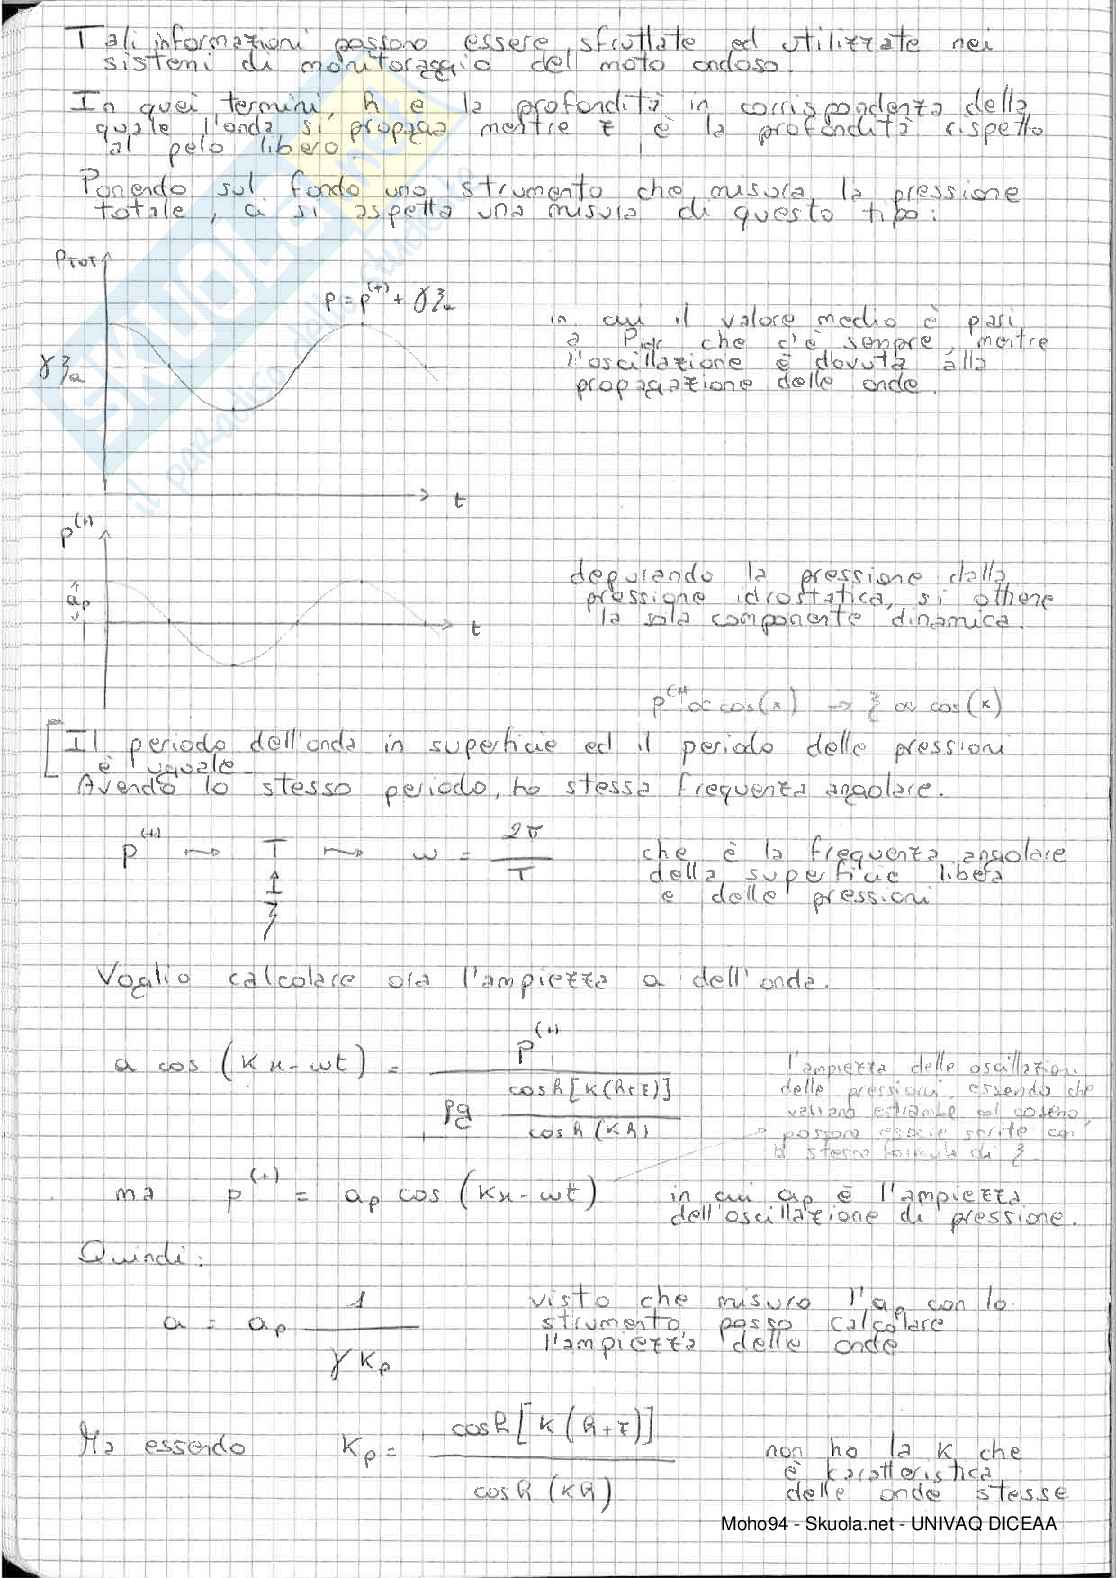 Tali informazioni possono essere sfruttate ed utilizzate nei
sistemi di monitoraggio del moto ondoso.
In quei termini, h è la profondità in corrispondenza della
quale l'onda si propaga mentre z è la profondità rispetto
al pelo libero.
Ponendo sul fondo uno strumento che misura la pressione
totale, ci si aspetta una misura di questo tipo:
PTOT
p = p(+) + γ
γ
t
in cui il valore medio è pari
a che c'è sempre, mentre
l'oscillazione è dovuta alla
propagazione delle onde.
p(+)
ap
t
depurando la pressione dalla
pressione idrostatica, si ottiene
la sola componente dinamica.
p(+) ∝ cos(x) → ξ ∝ cos(x)
[Il periodo dell'onda in superficie ed il periodo delle pressioni
è uguale.
Avendo lo stesso periodo, ho stessa frequenza angolare.
p(+) → T → ω = 2π / T
↑
ξ
che è la frequenza angolare
della superficie libera
e delle pressioni
Voglio calcolare ora l'ampiezza a dell'onda.
a cos (kx - ωt) = p(+) / ρg cosh[k(h+z)] / cosh(kh)
l'ampiezza delle oscillazioni
delle pressioni, essendo che
variano entrambe col coseno,
possono essere scritte con
la stessa formula di ξ
ma p(+) = ap cos (kx - ωt)
in cui ap è l'ampiezza
dell'oscillazione di pressione.
Quindi:
a = ap 1 / γ Kp
visto che misuro l'ap con lo
strumento posso calcolare
l'ampiezza delle onde
Ma essendo Kp = cosh[k(h+z)] / cosh(kh)
non ho la k che
è caratteristica
delle onde stesse
Moho94 - Skuola.net - UNIVAQ DICEAA
SKUOLA.net
il paradiso dello studente